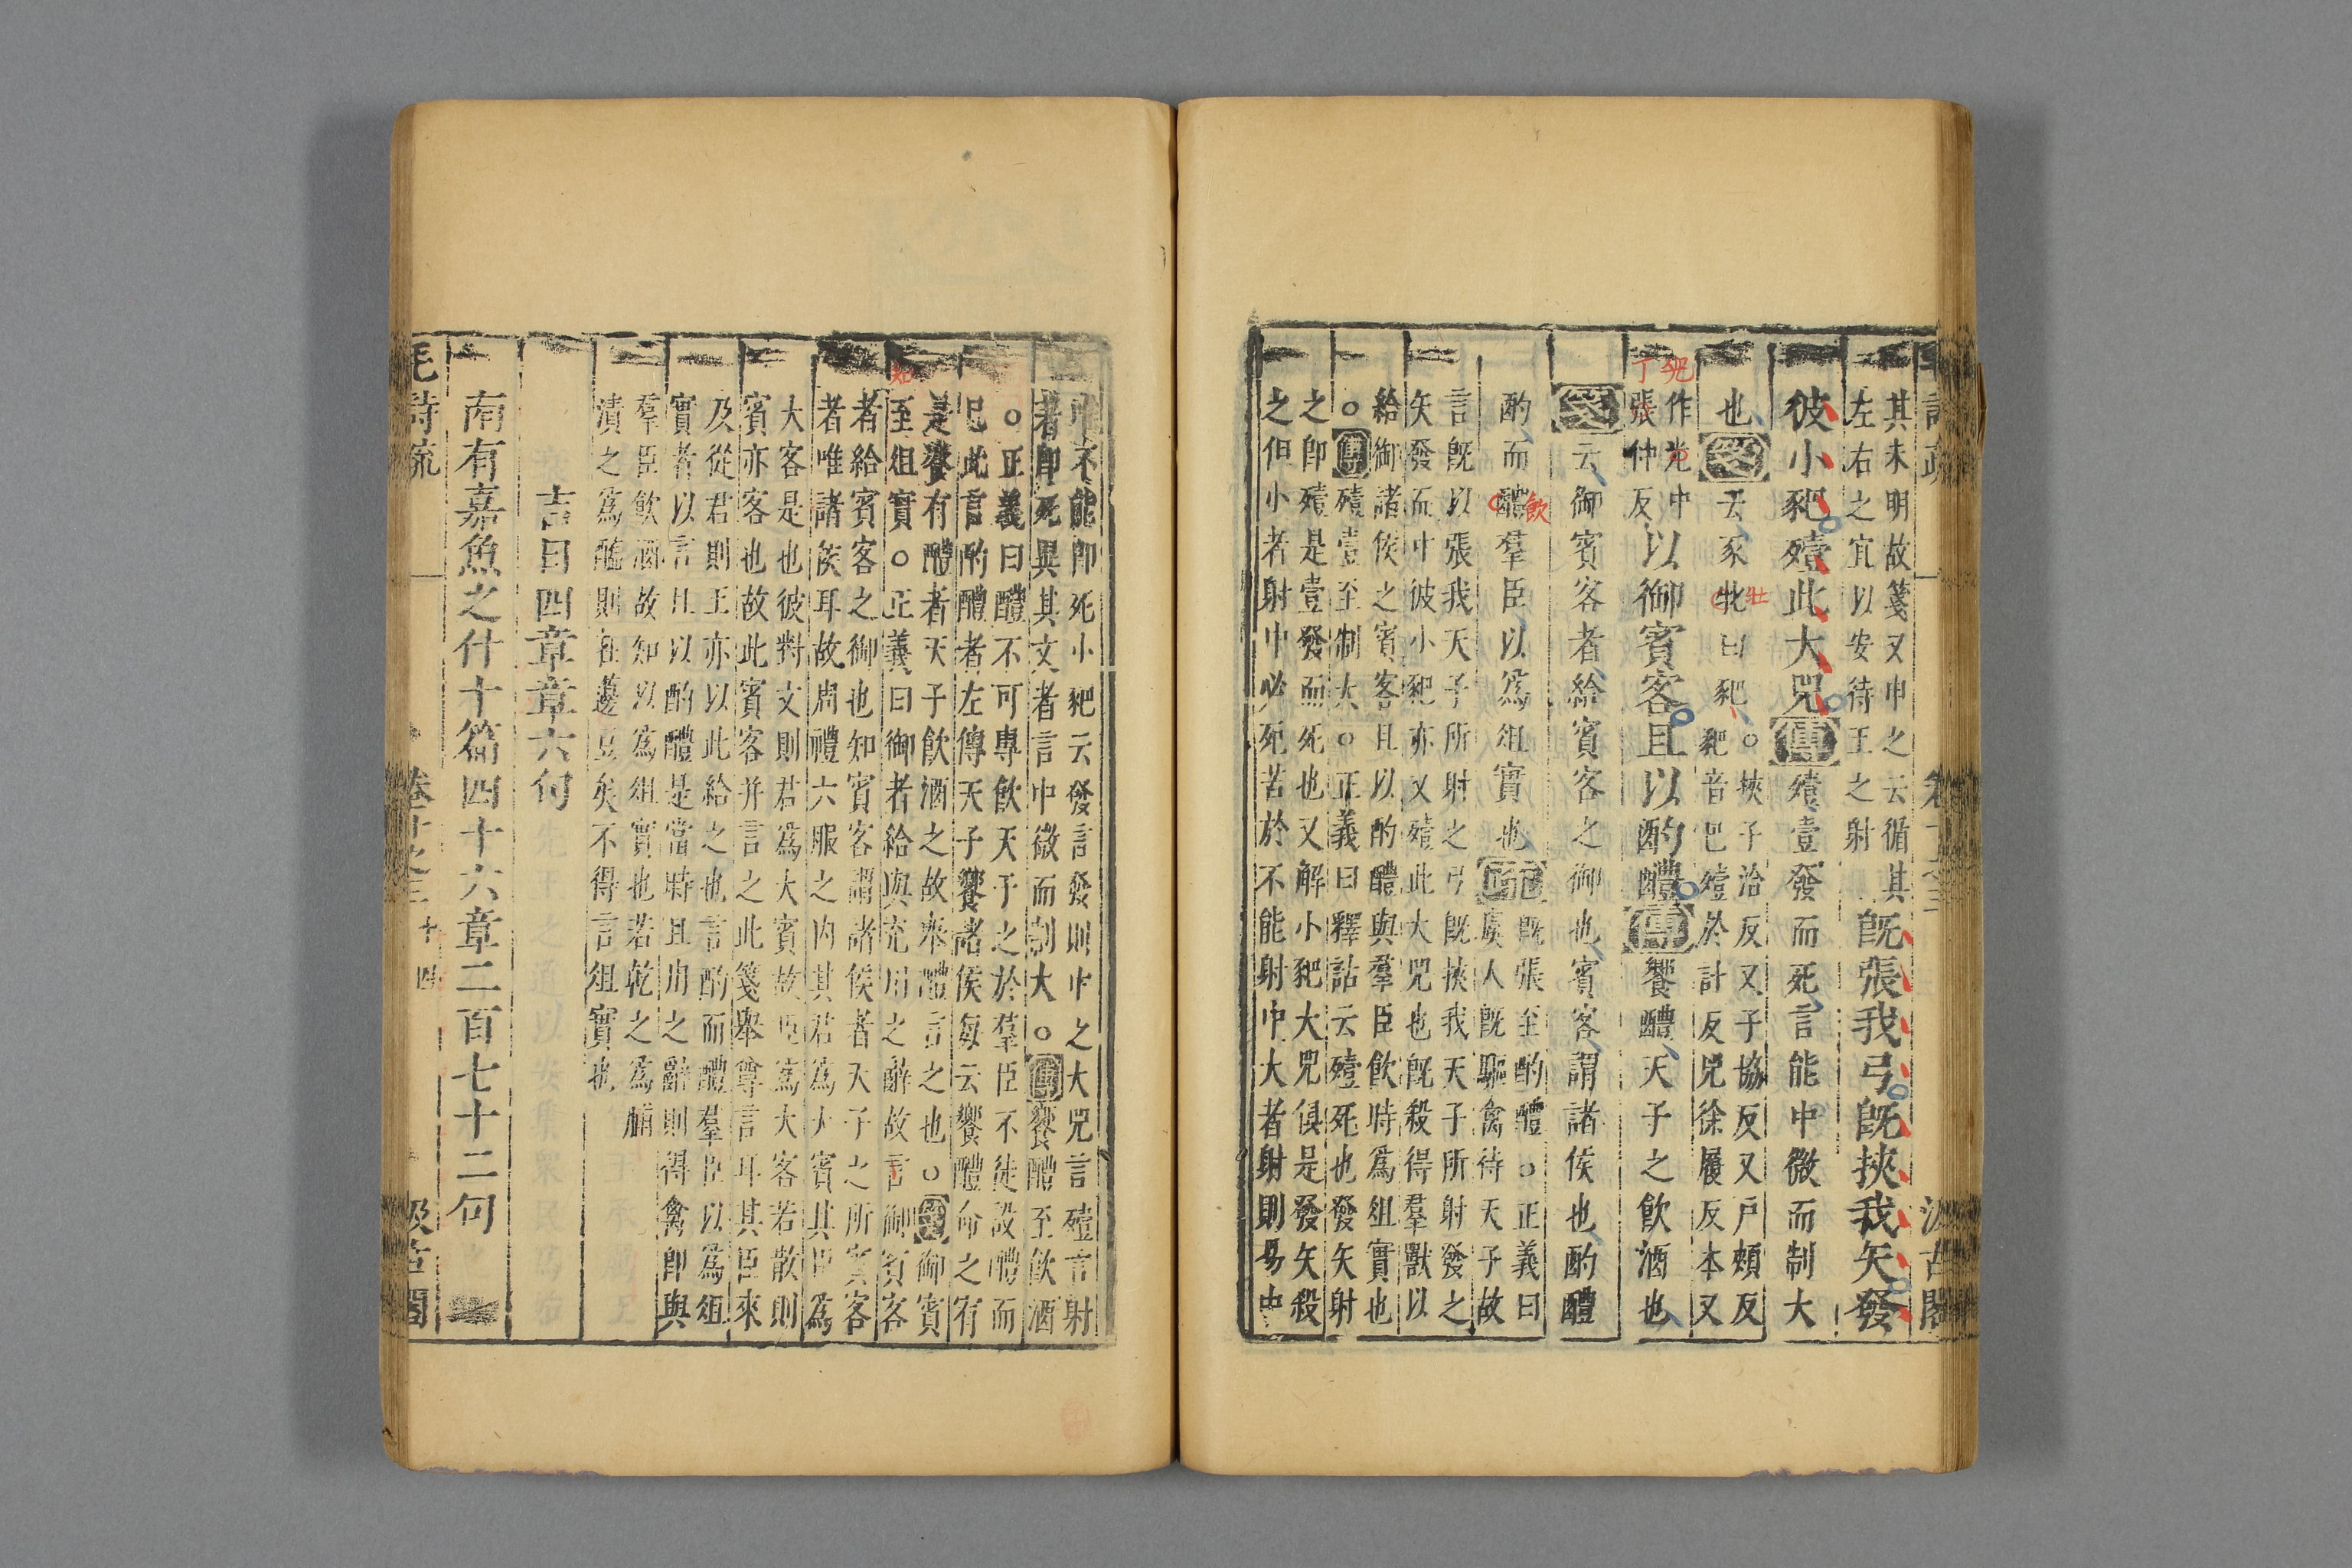 其未明故箋又申之云循其
左右之宜以安待王之射
既張我弓既挾我矢發
彼小豝殪此大兕傳殪壹發而死言能中微而制大
也箋云豕牝曰豝○挾子洽反又子協反又戶頰反
豝音巴殪於計反兕徐履反本又
作光中
張仲反
以御賓客且以酌醴傳饗醴天子之飲酒也
箋云御賓客者給賓客之御也賓客謂諸侯也酌醴
酌而醴羣臣以爲俎實也疏既張至酌醴○正義曰
虞人既驅禽待天子故
言既以張我天子所射之弓既挾我天子所射發之
矢發而中彼小豝亦又殪此大兕也既殺得羣獸以
給御諸侯之賓客且以酌醴與羣臣飲時爲俎實也
○傳殪壹至制大○正義曰釋詁云殪死也發矢射
之即殪是壹發而死也又解小豝大兕俱是發矢殺
之但小者射中必死苦於不能射中大者射則易中
唯不能即死小豝云發言發則中之大兕言殪言射
著即死異其文者言中微而制大○傳饗醴至飲酒
○正義曰醴不可專飲天子之於羣臣不徒設醴而
已此言酌醴者左傳天子饗諸侯每云饗醴命之宥
是饗有醴者天子飲酒之故舉醴言之也○箋御賓
至俎實○正義曰御者給與充用之辭故言御賓客
者給賓客之御也知賓客謂諸侯者天子之所賓客
者唯諸侯耳故周禮六服之內其君爲大賓其臣爲
大客是也彼對文則君爲大賓故臣爲大客若散則
賓亦客也故此賓客并言之此箋舉尊言耳其臣來
及從君則王亦以此給之也言酌而醴羣臣以爲俎
實者以言且以酌醴是當時且用之辭則得禽即與
羣臣飲酒故知以爲俎實也若乾之爲脯
漬之爲醢則在籩豆矣不得言俎實也
吉日四章章六句
南有嘉魚之什十篇四十六章二百七十二句
毛詩疏
卷十之三
十四
汲古閣
豝
丁
飲
牡
知